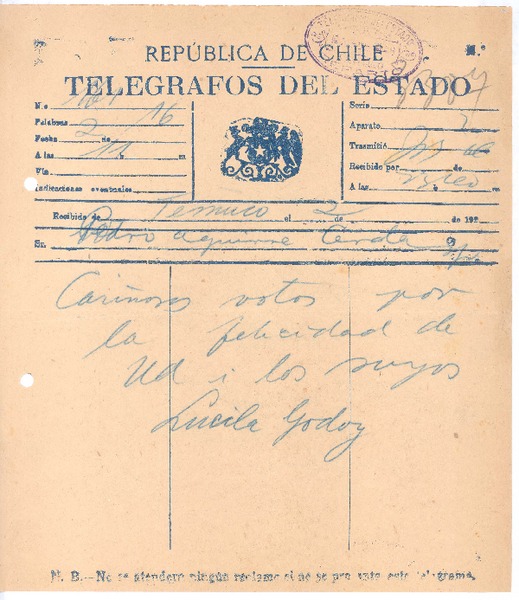 REPÚBLICA DE CHILE
N.º
TELEGRAFOS DEL ESTADO
N.o
Palabras 16
Fecha 2 de
A las 11 m
Vía
Indicaciones eventuales
Serie
Aparato
Trasmitió
Recibido por
A las m
Recibido de Temuco el 2 de de 192
Sr. Pedro Aguirre Cerda
Cariñosos votos por
la felicidad de
Ud i los suyos
Lucila Godoy
N. B.—No se atenderá ningún reclamo si no se presenta este telegrama.